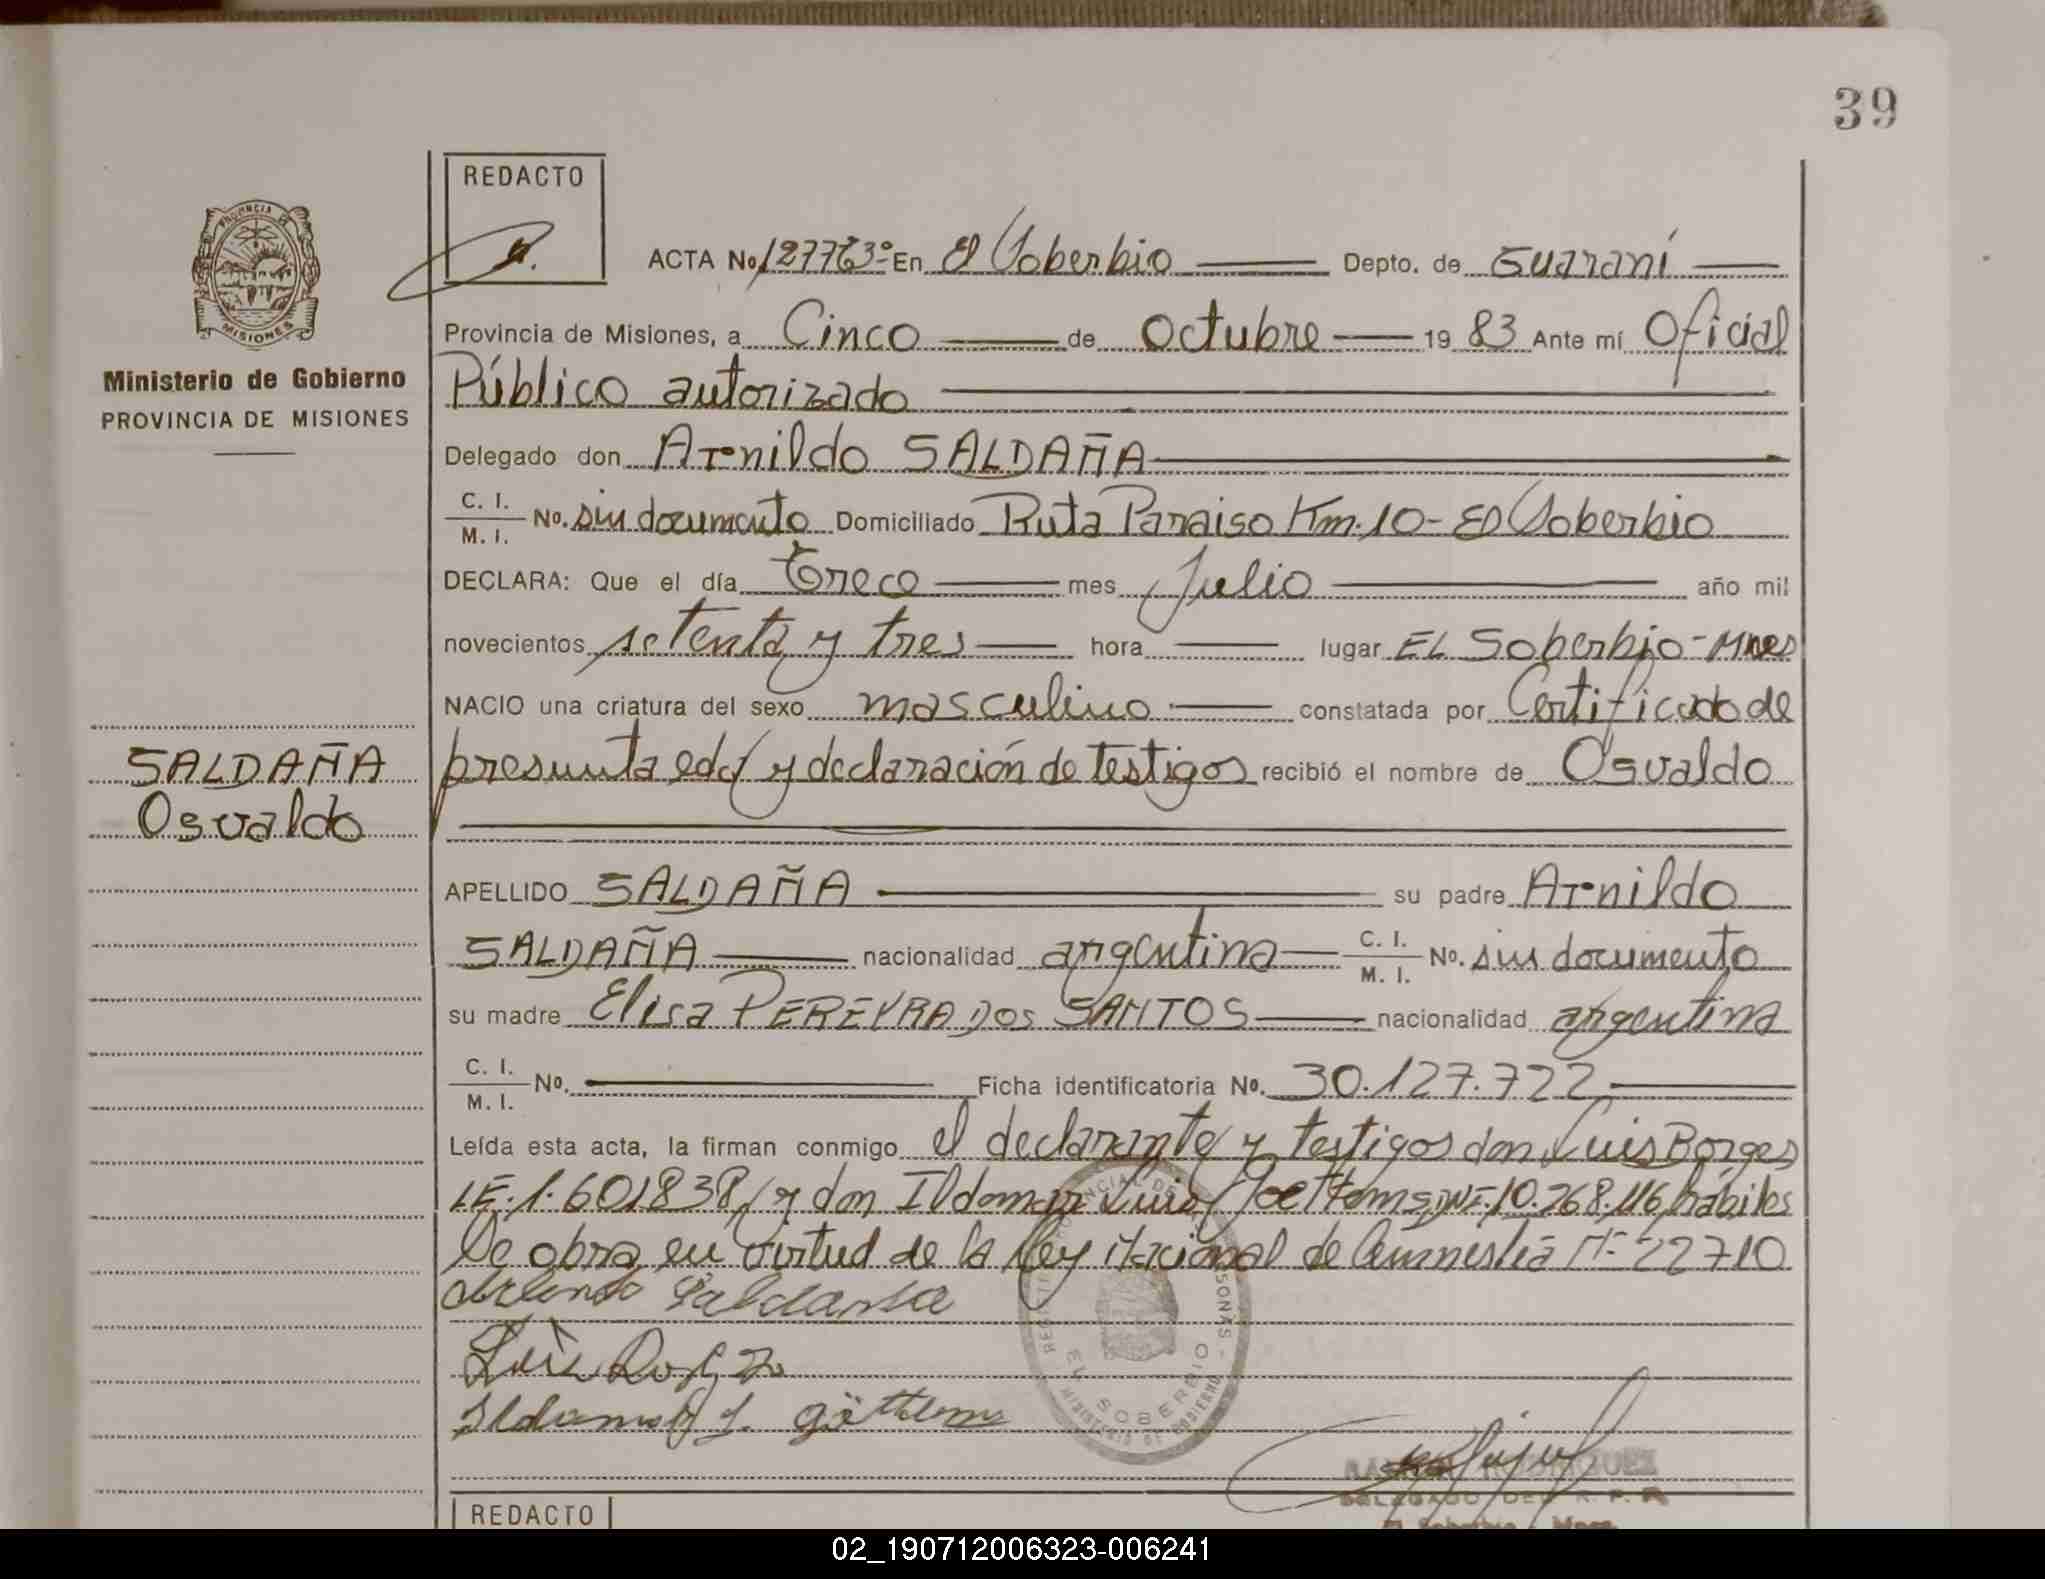 39
REDACTO
ACTA No. 127763º En El Soberbio Depto. de Guaraní
Provincia de Misiones, a Cinco de Octubre 19 83 Ante mí Oficial
Público autorizado
Ministerio de Gobierno
PROVINCIA DE MISIONES
Delegado don Arnildo SALDAÑA
C. I. / M. I. No. sin documento Domiciliado Ruta Paraiso Km. 10 - El Soberbio
DECLARA: Que el día Trece mes Julio año mil
novecientos setenta y tres hora lugar EL Soberbio - Mnes
NACIO una criatura del sexo masculino constatada por Certificado de
presunta edad y declaración de testigos recibió el nombre de Osvaldo
SALDAÑA
Osvaldo
APELLIDO SALDAÑA su padre Arnildo
SALDAÑA nacionalidad argentina C. I. / M. I. No. sin documento
su madre Elisa PEREYRA DOS SANTOS nacionalidad argentina
C. I. / M. I. No. Ficha identificatoria No. 30.127.722
Leída esta acta, la firman conmigo el declarante y testigos don Luis Borges
LE. 1.601838 y don Ildomar Luis Goettems, DNI. 10.268.116, hábiles
Se obra en virtud de la Ley Nacional de Amnistía Nº 22710
EL SOBERBIO
MINISTERIO DE GOBIERNO
RODRIGUEZ
DELEGADO DEL R. P. P.
El Soberbio - Mnes.
REDACTO
02_190712006323-006241